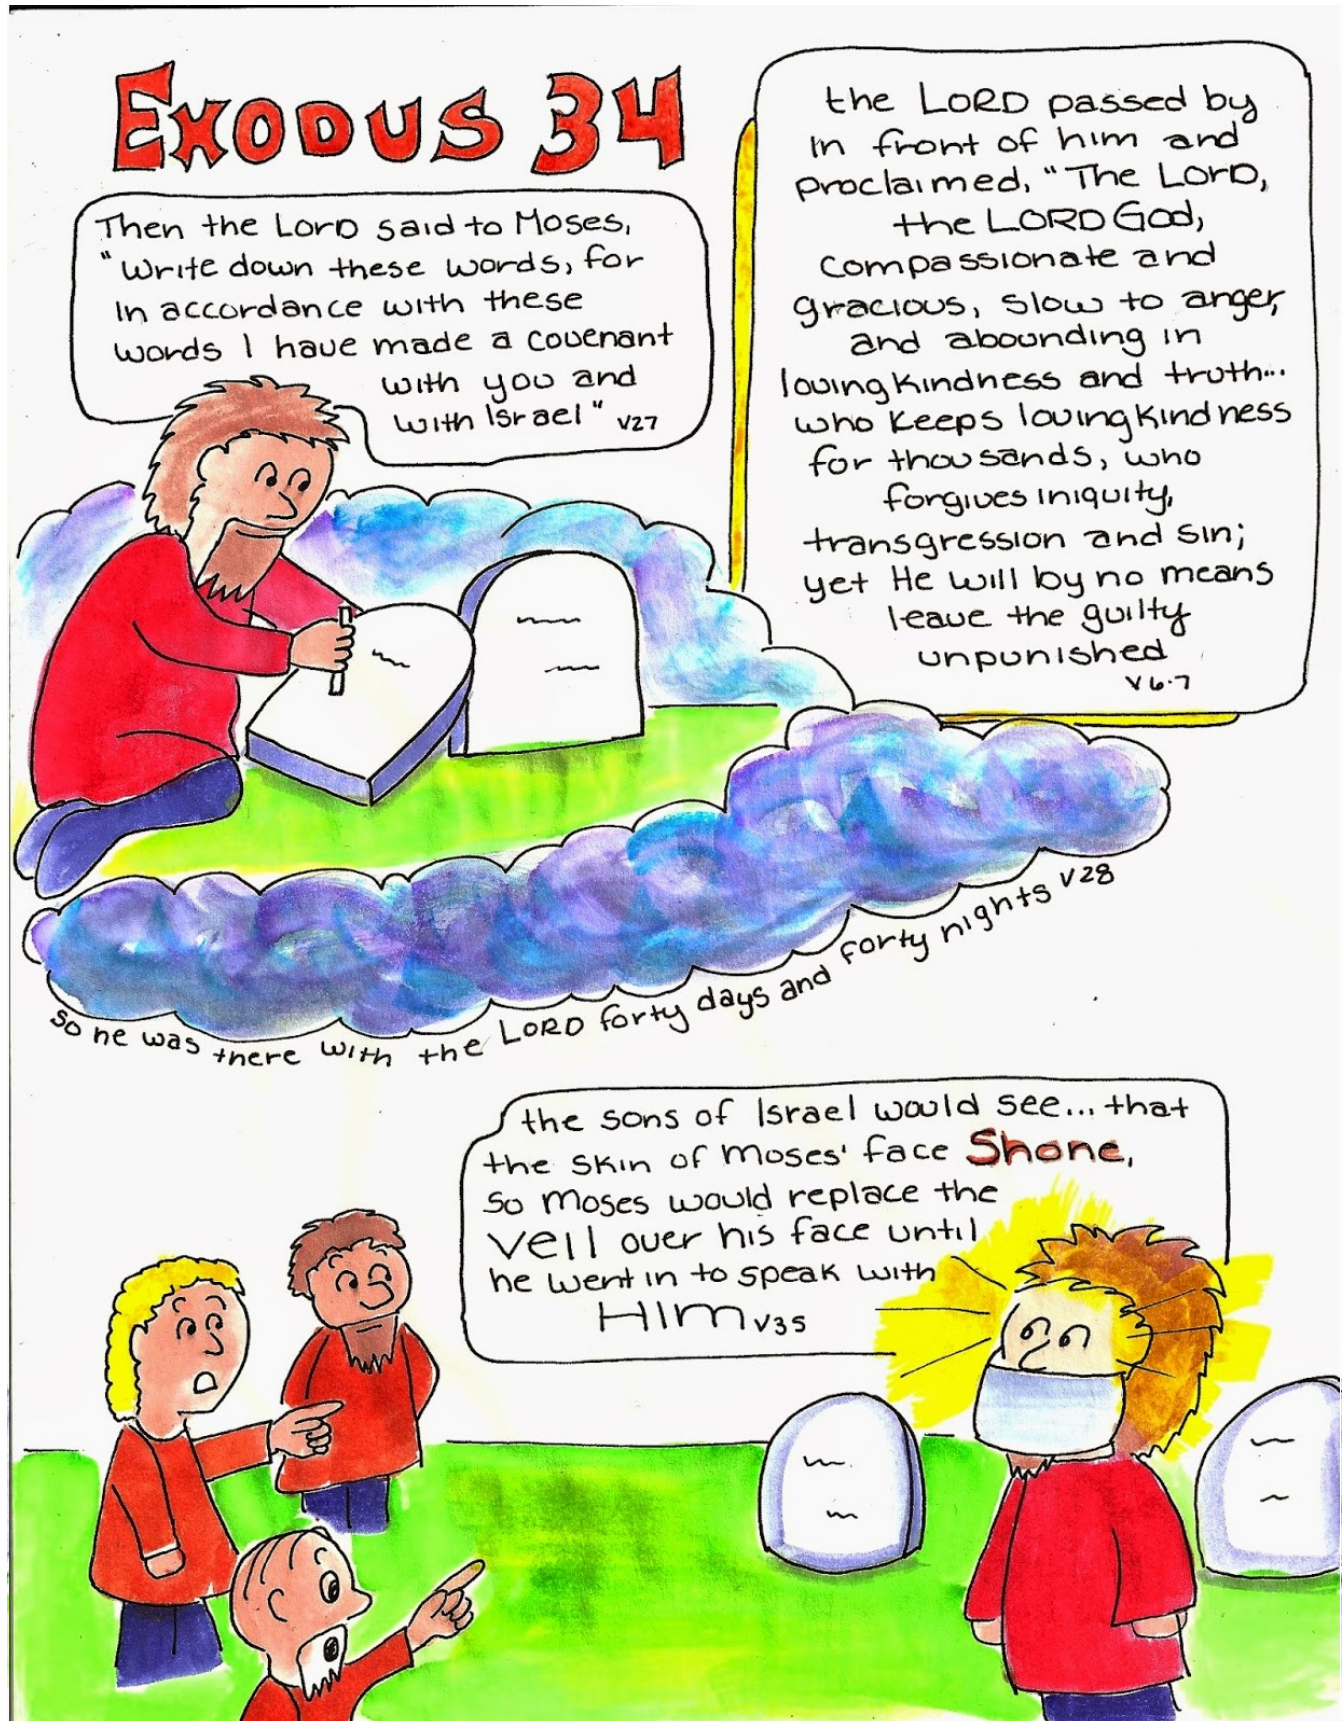 EXODUS 34
Then the LORD said to Moses,
"Write down these words, for
in accordance with these
words I have made a covenant
with you and
with Israel" v27
the LORD passed by
in front of him and
proclaimed, "The LORD,
the LORD God,
compassionate and
gracious, slow to anger,
and abounding in
lovingkindness and truth...
who keeps lovingkindness
for thousands, who
forgives iniquity,
transgression and sin;
yet He will by no means
leave the guilty
unpunished
v6-7
so he was there with the LORD forty days and forty nights v28
the sons of Israel would see... that
the skin of Moses' face Shone,
so Moses would replace the
veil over his face until
he went in to speak with
HIM v35